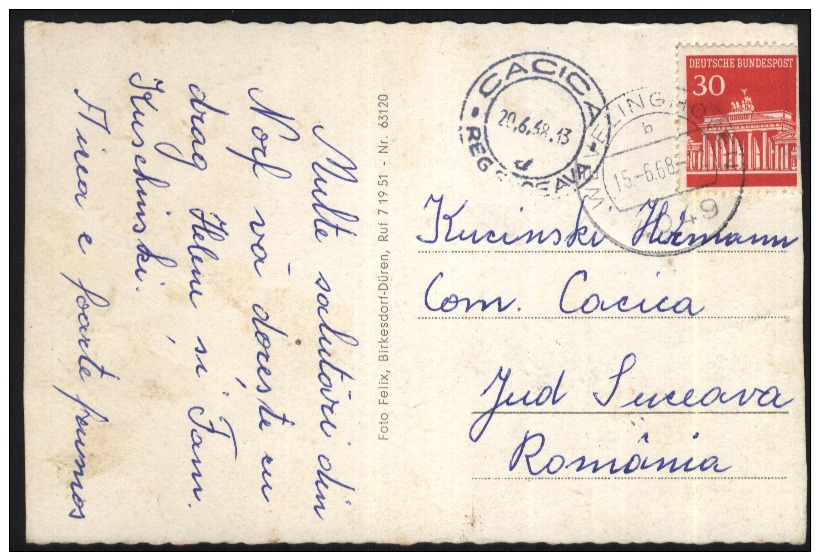 Multe salutări din
Norf vă dorește cu
drag Helene si Fam.
Kuschinski.
Aicea e foarte frumos
Foto Felix, Birkesdorf-Düren, Ruf 7 19 51 - Nr. 63120
CACICA
REG. SUCEAVA
20.6.68.13
d
DEUTSCHE BUNDESPOST
30
b
15.-6.68-
4049
Kucinski Hermann
Com. Cacica
Jud Suceava
România